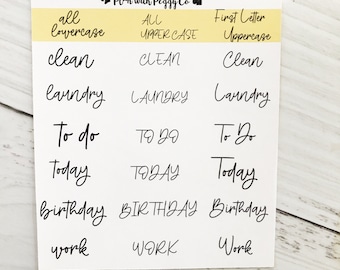 Plan with Peggy Co
all lowercase
ALL UPPERCASE
First Letter Uppercase
clean CLEAN Clean
laundry LAUNDRY Laundry
To do TO DO To Do
Today TODAY Today
birthday BIRTHDAY Birthday
work WORK Work